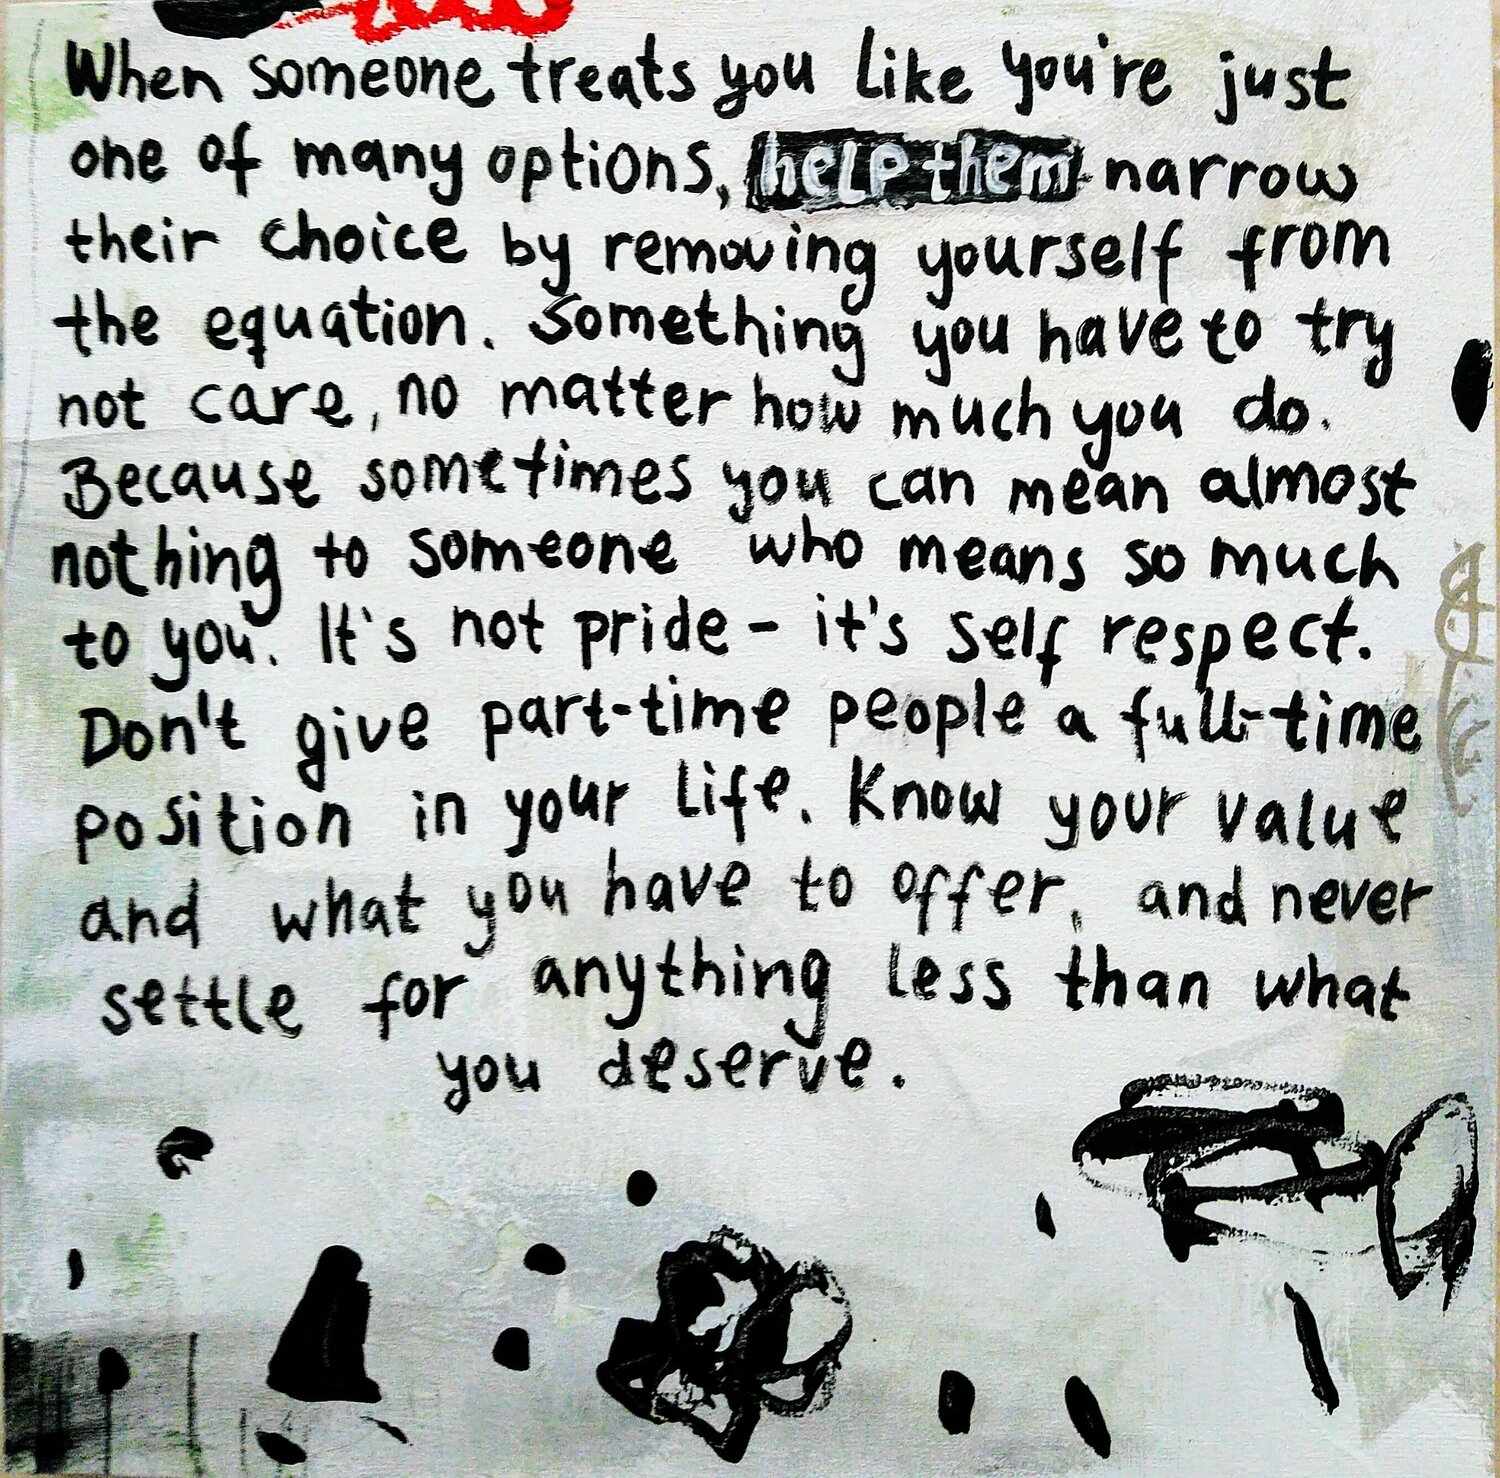 When someone treats you like you're just
one of many options, help them narrow
their choice by removing yourself from
the equation. Something you have to try
not care, no matter how much you do.
Because sometimes you can mean almost
nothing to someone who means so much
to you. It's not pride - it's self respect.
Don't give part-time people a full-time
position in your life. Know your value
and what you have to offer, and never
settle for anything less than what
you deserve.